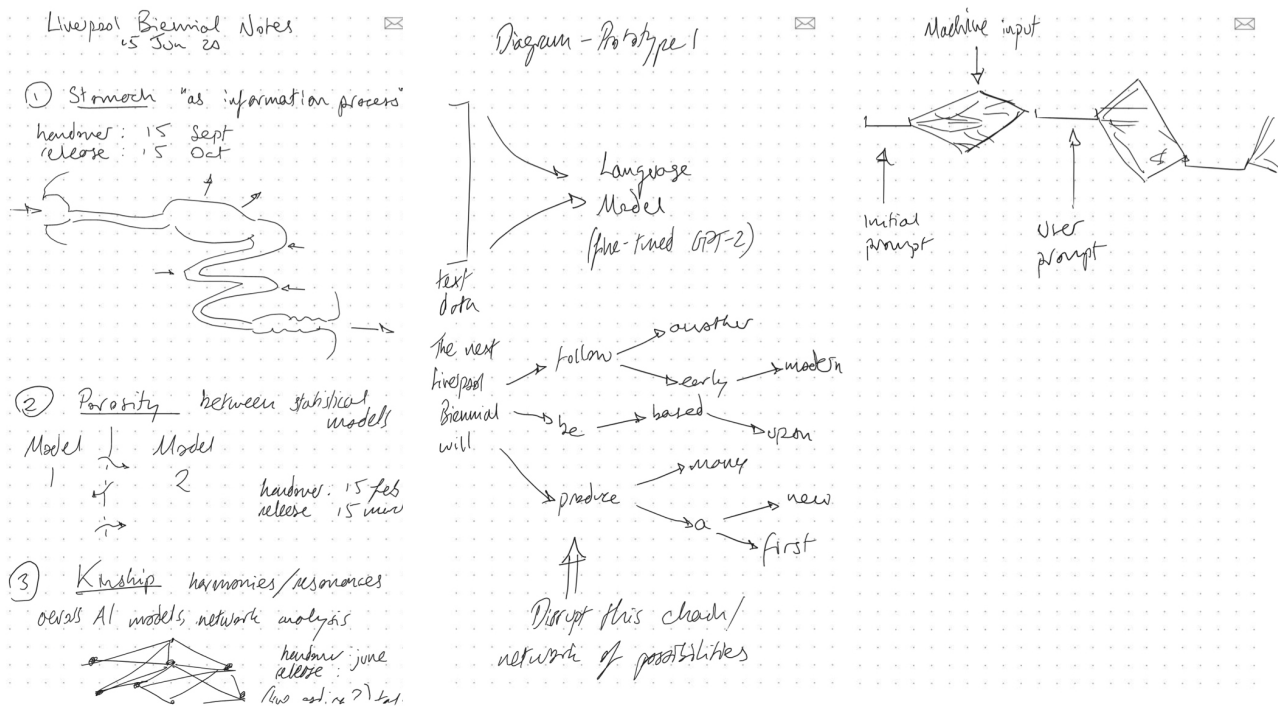 Liverpool Biennial Notes
15 Jun 20
① Stomach "as information process"
handover: 15 Sept
release: 15 Oct
② Porosity between statistical
models
Model Model
1 2
handover: 15 feb
release 15 mar
③ Kinship harmonies/resonances
across AI models, network analysis
handover: june
release:
(live
Diagram - Prototype 1
Language
Model
(fine-tuned GPT-2)
text
data
The next
Liverpool
Biennial
will
follow
another
early
modern
be
based
upon
produce
many
a
new
first
Disrupt this chain/
network of possibilities
Machine input
Initial
prompt
User
prompt